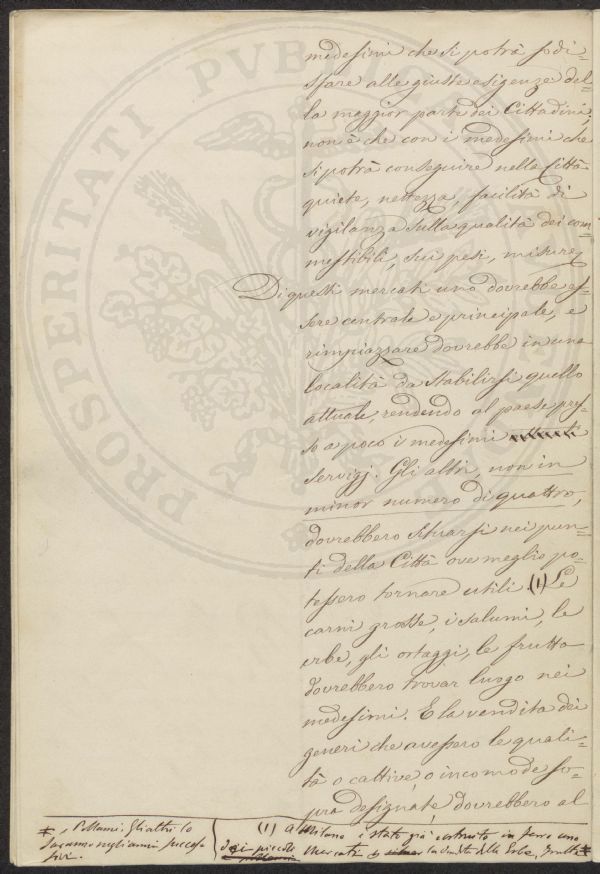 medesimi che si potrà sodi-
sfare alle giuste esigenze del-
la maggior parte dei Cittadini,
non è che con i medesimi che
si potrà conseguire nella Città
quiete, nettezza, facilità di
vigilanza sulla qualità dei com-
mestibili, sui pesi, misure
Di questi mercati uno dovrebbe es-
sere centrale e principale, e
rimpiazzare dovrebbe in una
località da stabilirsi quello
attuale, rendendo al paese pres-
so a poco i medesimi
servigj. Gli altri, non in
minor numero di quattro,
dovrebbero situarsi nei pun-
ti della Città ove meglio po-
tessero tornare utili. (1) Le
carni grosse, i salumi, le
erbe, gli ortaggi, le frutta
dovrebbero trovar luogo nei
medesimi. E la vendita dei
generi che avessero le quali-
tà o cattive, o incomode so-
pra designate, dovrebbero al
(1) a Milano è stato già costruito in ferro uno
dei piccoli mercati la vendita delle Erbe, frutta
, Pollami. Gli altri lo
saranno negli anni succes-
sivi.
PROSPERITATI PVBLICAE